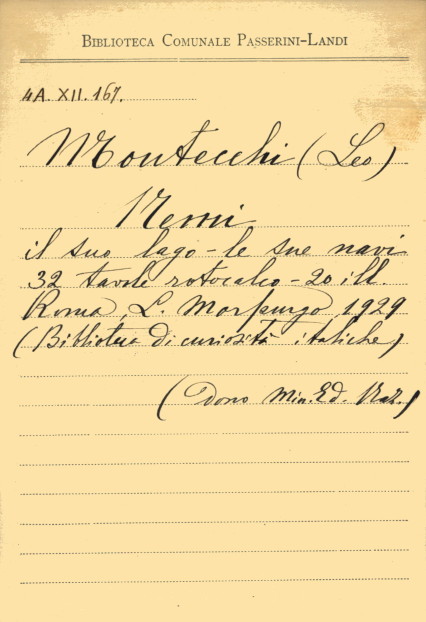 BIBLIOTECA COMUNALE PASSERINI-LANDI
4A. XII. 167.
Montecchi (Leo)
Nemi
il suo lago - le sue navi
32 tavole rotocalco - 20 ill.
Roma, L. Morpurgo, 1929
(Biblioteca di curiosità italiche)
(Dono Min. Ed. Naz.)